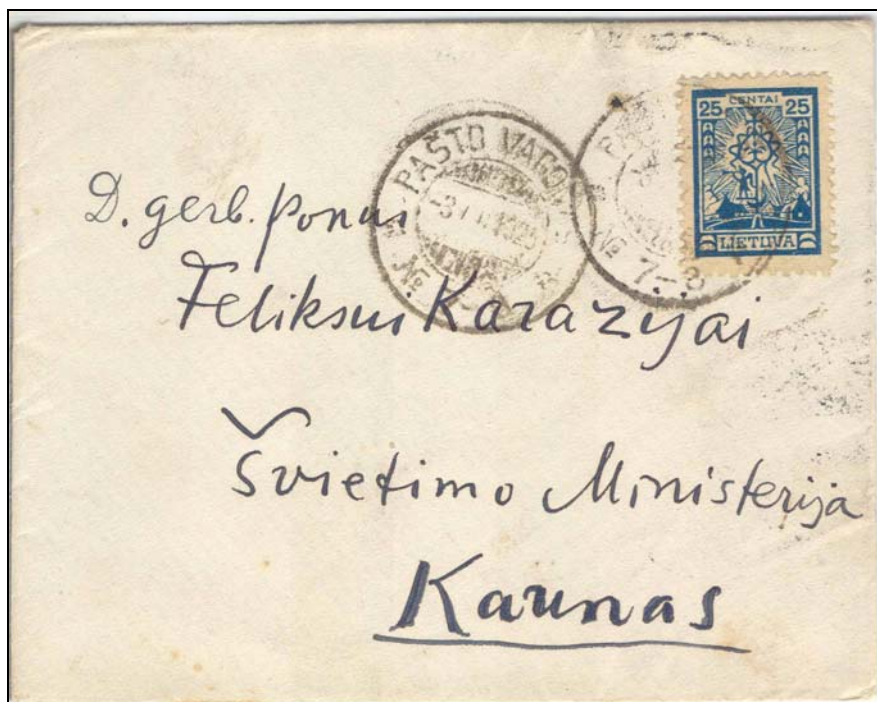 25 CENTAI 25
LIETUVA
PAŠTO VAGONAS
№
№ 7-8
D. gerb. ponui
Feliksui Karazyai
Švietimo Ministerija
Kaunas